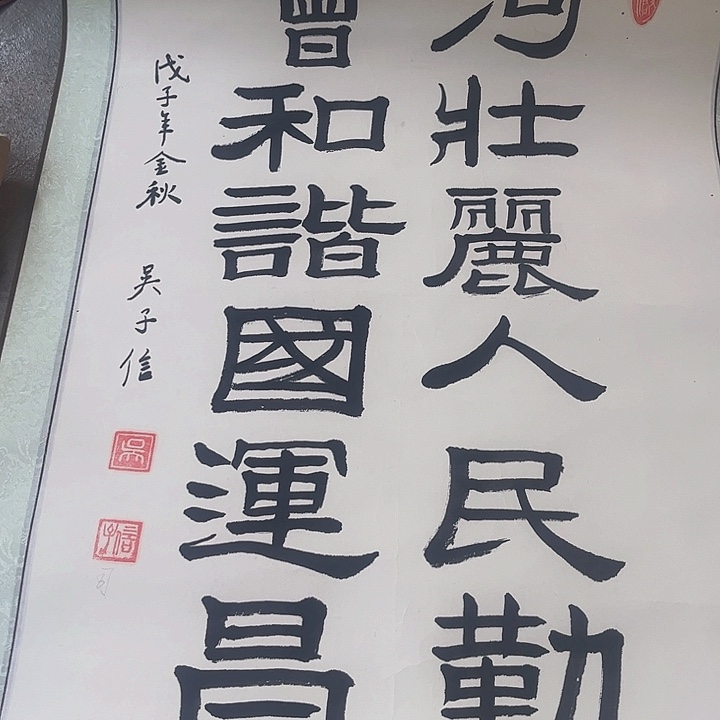 河壯麗人民勤
會和諧國運昌
戊子年金秋 吳子信
吳
子信